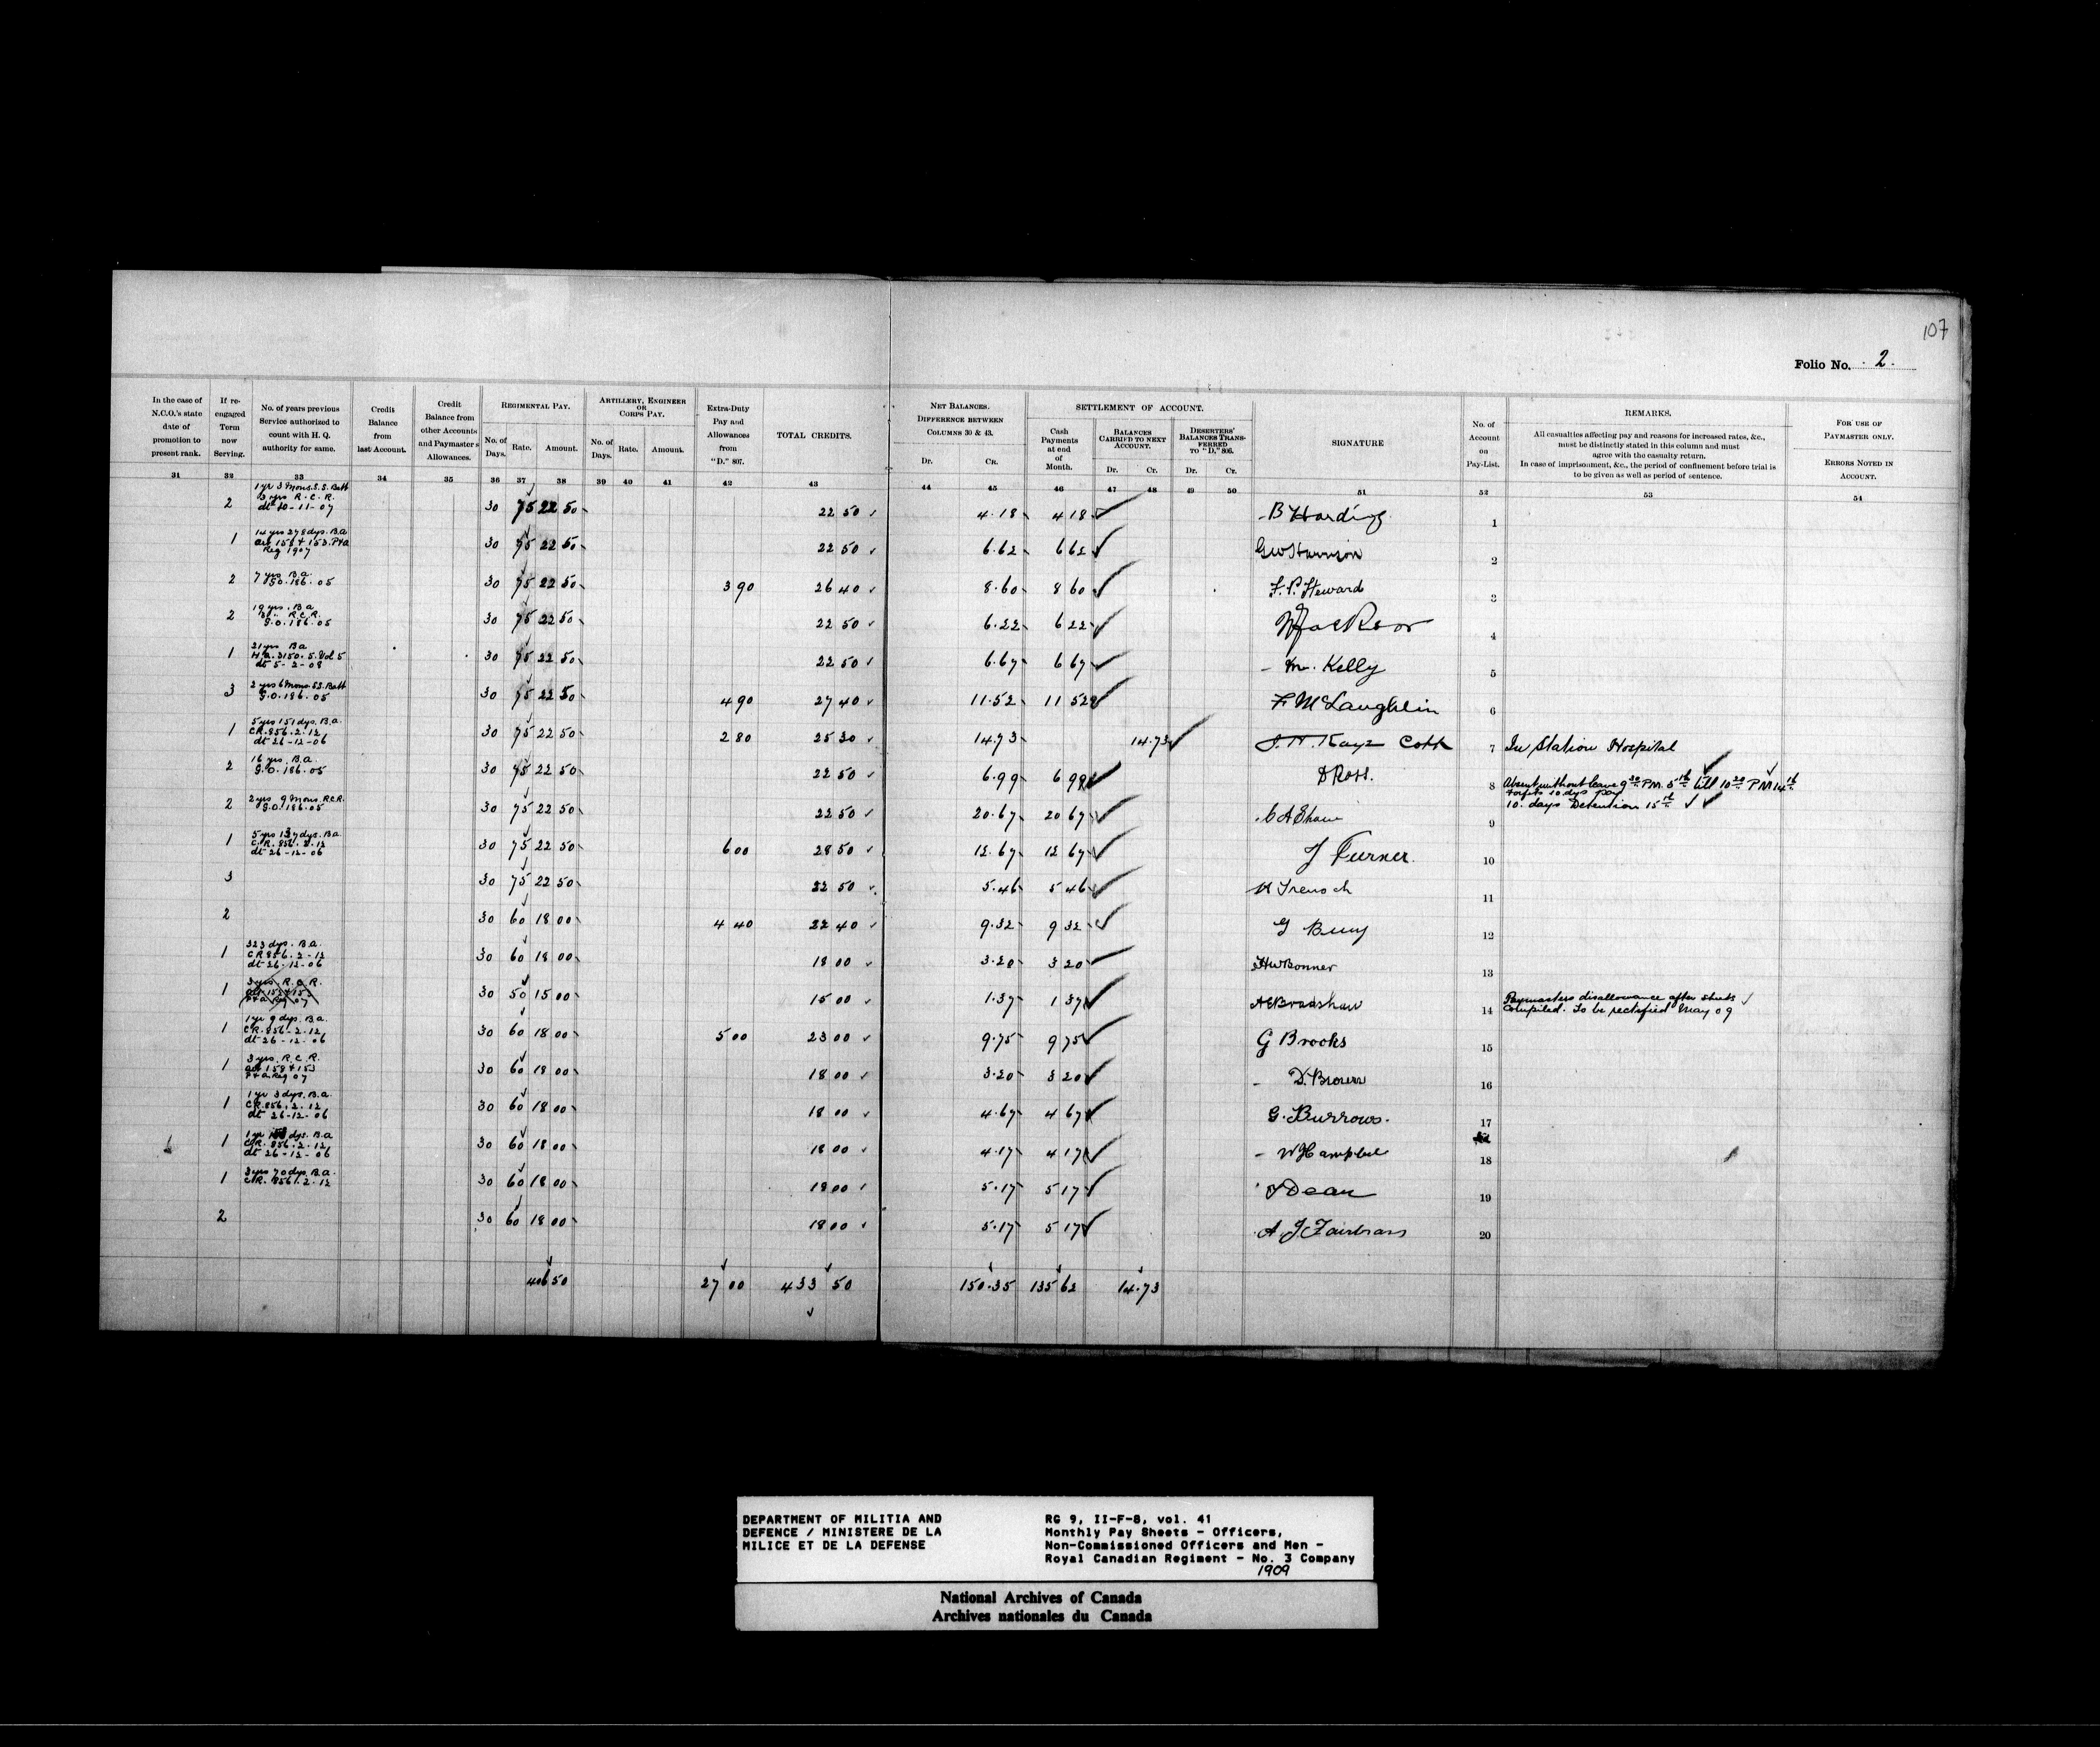 107
Folio No. 2.
In the case of N.C.O.'s state date of promotion to present rank.
If re-engaged Term now Serving.
No. of years previous Service authorized to count with H. Q. authority for same.
Credit Balance from last Account.
Credit Balance from other Accounts and Paymaster's Allowances.
REGIMENTAL PAY.
No. of Days. Rate. Amount.
ARTILLERY, ENGINEER OR CORPS PAY.
No. of Days. Rate. Amount.
Extra-Duty Pay and Allowances from "D." 807.
TOTAL CREDITS.
NET BALANCES. DIFFERENCE BETWEEN COLUMNS 30 & 43.
Dr. Cr.
SETTLEMENT OF ACCOUNT.
Cash Payments at end of Month.
BALANCES CARRIED TO NEXT ACCOUNT.
Dr. Cr.
DESERTERS' BALANCES TRANSFERRED TO "D." 806.
Dr. Cr.
SIGNATURE
No. of Account on Pay-List.
REMARKS.
All casualties affecting pay and reasons for increased rates, &c.,
must be distinctly stated in this column and must
agree with the casualty return.
In case of imprisonment, &c., the period of confinement before trial is
to be given as well as period of sentence.
FOR USE OF PAYMASTER ONLY.
ERRORS NOTED IN ACCOUNT.
31 32 33 34 35 36 37 38 39 40 41 42 43 44 45 46 47 48 49 50 51 52 53 54
2 1 yr 3 Mons. S.S. Batt 3 yrs R.C.R. dt 20-11-07 30 75 22 50 22 50 4.18 4 18 B Harding 1
1 14 yrs 278 dys. B.a art 158 + 153. P+a Reg 1907 30 75 22 50 22 50 6.62 6 62 GW Harrison 2
2 7 yrs B.a. G.O. 186.05 30 75 22 50 3 90 26 40 8.60 8 60 F.P. Steward 3
2 19 yrs. B.a R.C.R. G.O. 186.05 30 75 22 50 22 50 6.22 6 22 W Jackson 4
1 21 yrs B.a H.Q. 3150.5. Vol 5 dt 5-2-08 30 75 22 50 22 50 6.67 6 67 M. Kelly 5
3 2 yrs 6 Mons. S.S. Batt G.O. 186.05 30 75 22 50 4 90 27 40 11.52 11 52 F McLaughlin 6
1 5 yrs 151 dys. B.a. CR. 856.2.12 dt 26-12-06 30 75 22 50 2 80 25 30 14.73 14.73 7 In Station Hospital
2 16 yrs. B.a. G.O. 186.05 30 75 22 50 22 50 6.99 6 99 D Ross. 8 Absent without leave 9 30 PM. 5th till 10 20 PM 14th
forfeits 10 dys pay
10. days Detention 15th
2 2 yrs 9 Mons. R.C.R. G.O. 186.05 30 75 22 50 22 50 20.67 20 67 C A Shaw 9
1 5 yrs 137 dys. B.a. C.R. 856.2.12 dt 26-12-06 30 75 22 50 6 00 28 50 12.67 12 67 J Turner. 10
3 30 75 22 50 22 50 5.46 5 46 11
2 30 60 18 00 4 40 22 40 9.32 9 32 12
1 323 dys. B.a. CR 856.2-12 dt 26.12-06 30 60 18 00 18 00 3.20 3 20 HW Bonner 13
1 3 yrs R.C.R. P+a Reg 07 30 50 15 00 15 00 1.37 1 37 AE Bradshaw 14 Paymasters disallowance after sheets
compiled. To be rectified May 09
1 1 yr 9 dys. B.a. CR. 856-2.12 dt 26-12-06 30 60 18 00 5 00 23 00 9.75 9 75 G Brooks 15
1 3 yrs. R.C.R. art 158 + 153 P+a Reg 07 30 60 18 00 18 00 3.20 3 20 D. Brown 16
1 1 yr 3 dys. B.a. CR 856.2.12 dt 26-12-06 30 60 18 00 18 00 4.67 4 67 G. Burrows. 17
1 1 yr dys. B.a C.R. 856.2.12 dt 26-12-06 30 60 18 00 18 00 4.17 4 17 W J Campbell 18
1 3 yrs 70 dys. B.a. C.R. 856.2.12 30 60 18 00 18 00 5.17 5 17 J Dean 19
2 30 60 18 00 18 00 5.17 5 17 A. J. Fairbrass 20
406 50 27 00 433 50 150.35 135 62 14.73
DEPARTMENT OF MILITIA AND
DEFENCE / MINISTERE DE LA
MILICE ET DE LA DEFENSE
RG 9, II-F-8, vol. 41
Monthly Pay Sheets - Officers,
Non-Commissioned Officers and Men -
Royal Canadian Regiment - No. 3 Company
1909
National Archives of Canada
Archives nationales du Canada